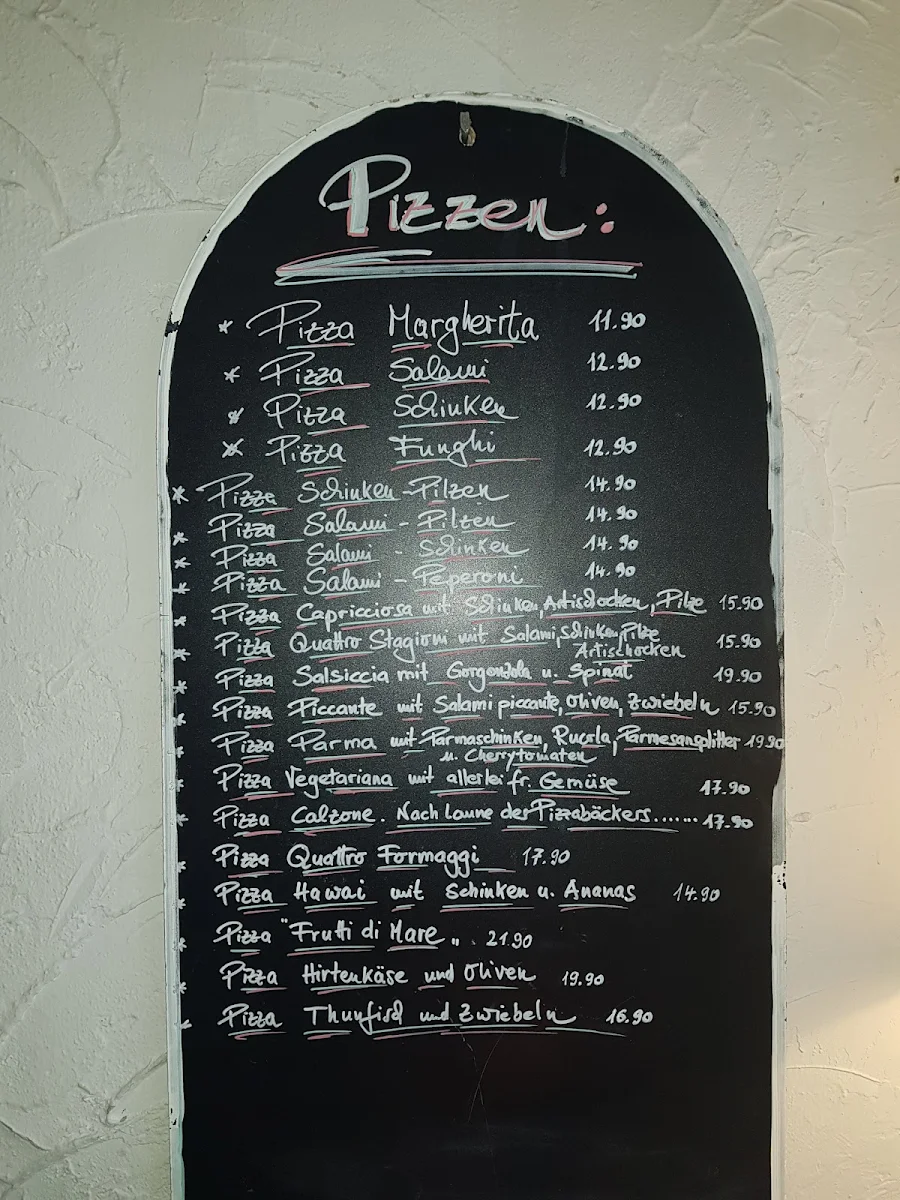 Pizzen:
* Pizza Margherita 11.90
* Pizza Salami 12.90
* Pizza Schinken 12.90
* Pizza Funghi 12.90
* Pizze Schinken-Pilzen 14.90
* Pizza Salami - Pilzen 14.90
* Pizza Salami - Schinken 14.90
* Pizza Salami - Peperoni 14.90
* Pizza Capricciosa mit Schinken, Artischocken, Pilze 15.90
* Pizza Quattro Stagioni mit Salami, Schinken, Pilze 15.90
Artischocken
* Pizza Salsiccia mit Gorgonzola u. Spinat 19.90
* Pizza Piccante mit Salami piccante, Oliven, Zwiebeln 15.90
* Pizza Parma mit Parmaschinken, Rucola, Parmesansplitter 19.90
u. Cherrytomaten
* Pizza Vegetariana mit allerlei fr. Gemüse 17.90
* Pizza Calzone. Nach Laune der Pizzabäckers....... 17.90
* Pizza Quattro Formaggi 17.90
* Pizza Hawai mit Schinken u. Ananas 14.90
* Pizza "Frutti di Mare„. 21.90
* Pizza Hirtenkäse und Oliven 19.90
* Pizza Thunfisch und Zwiebeln 16.90